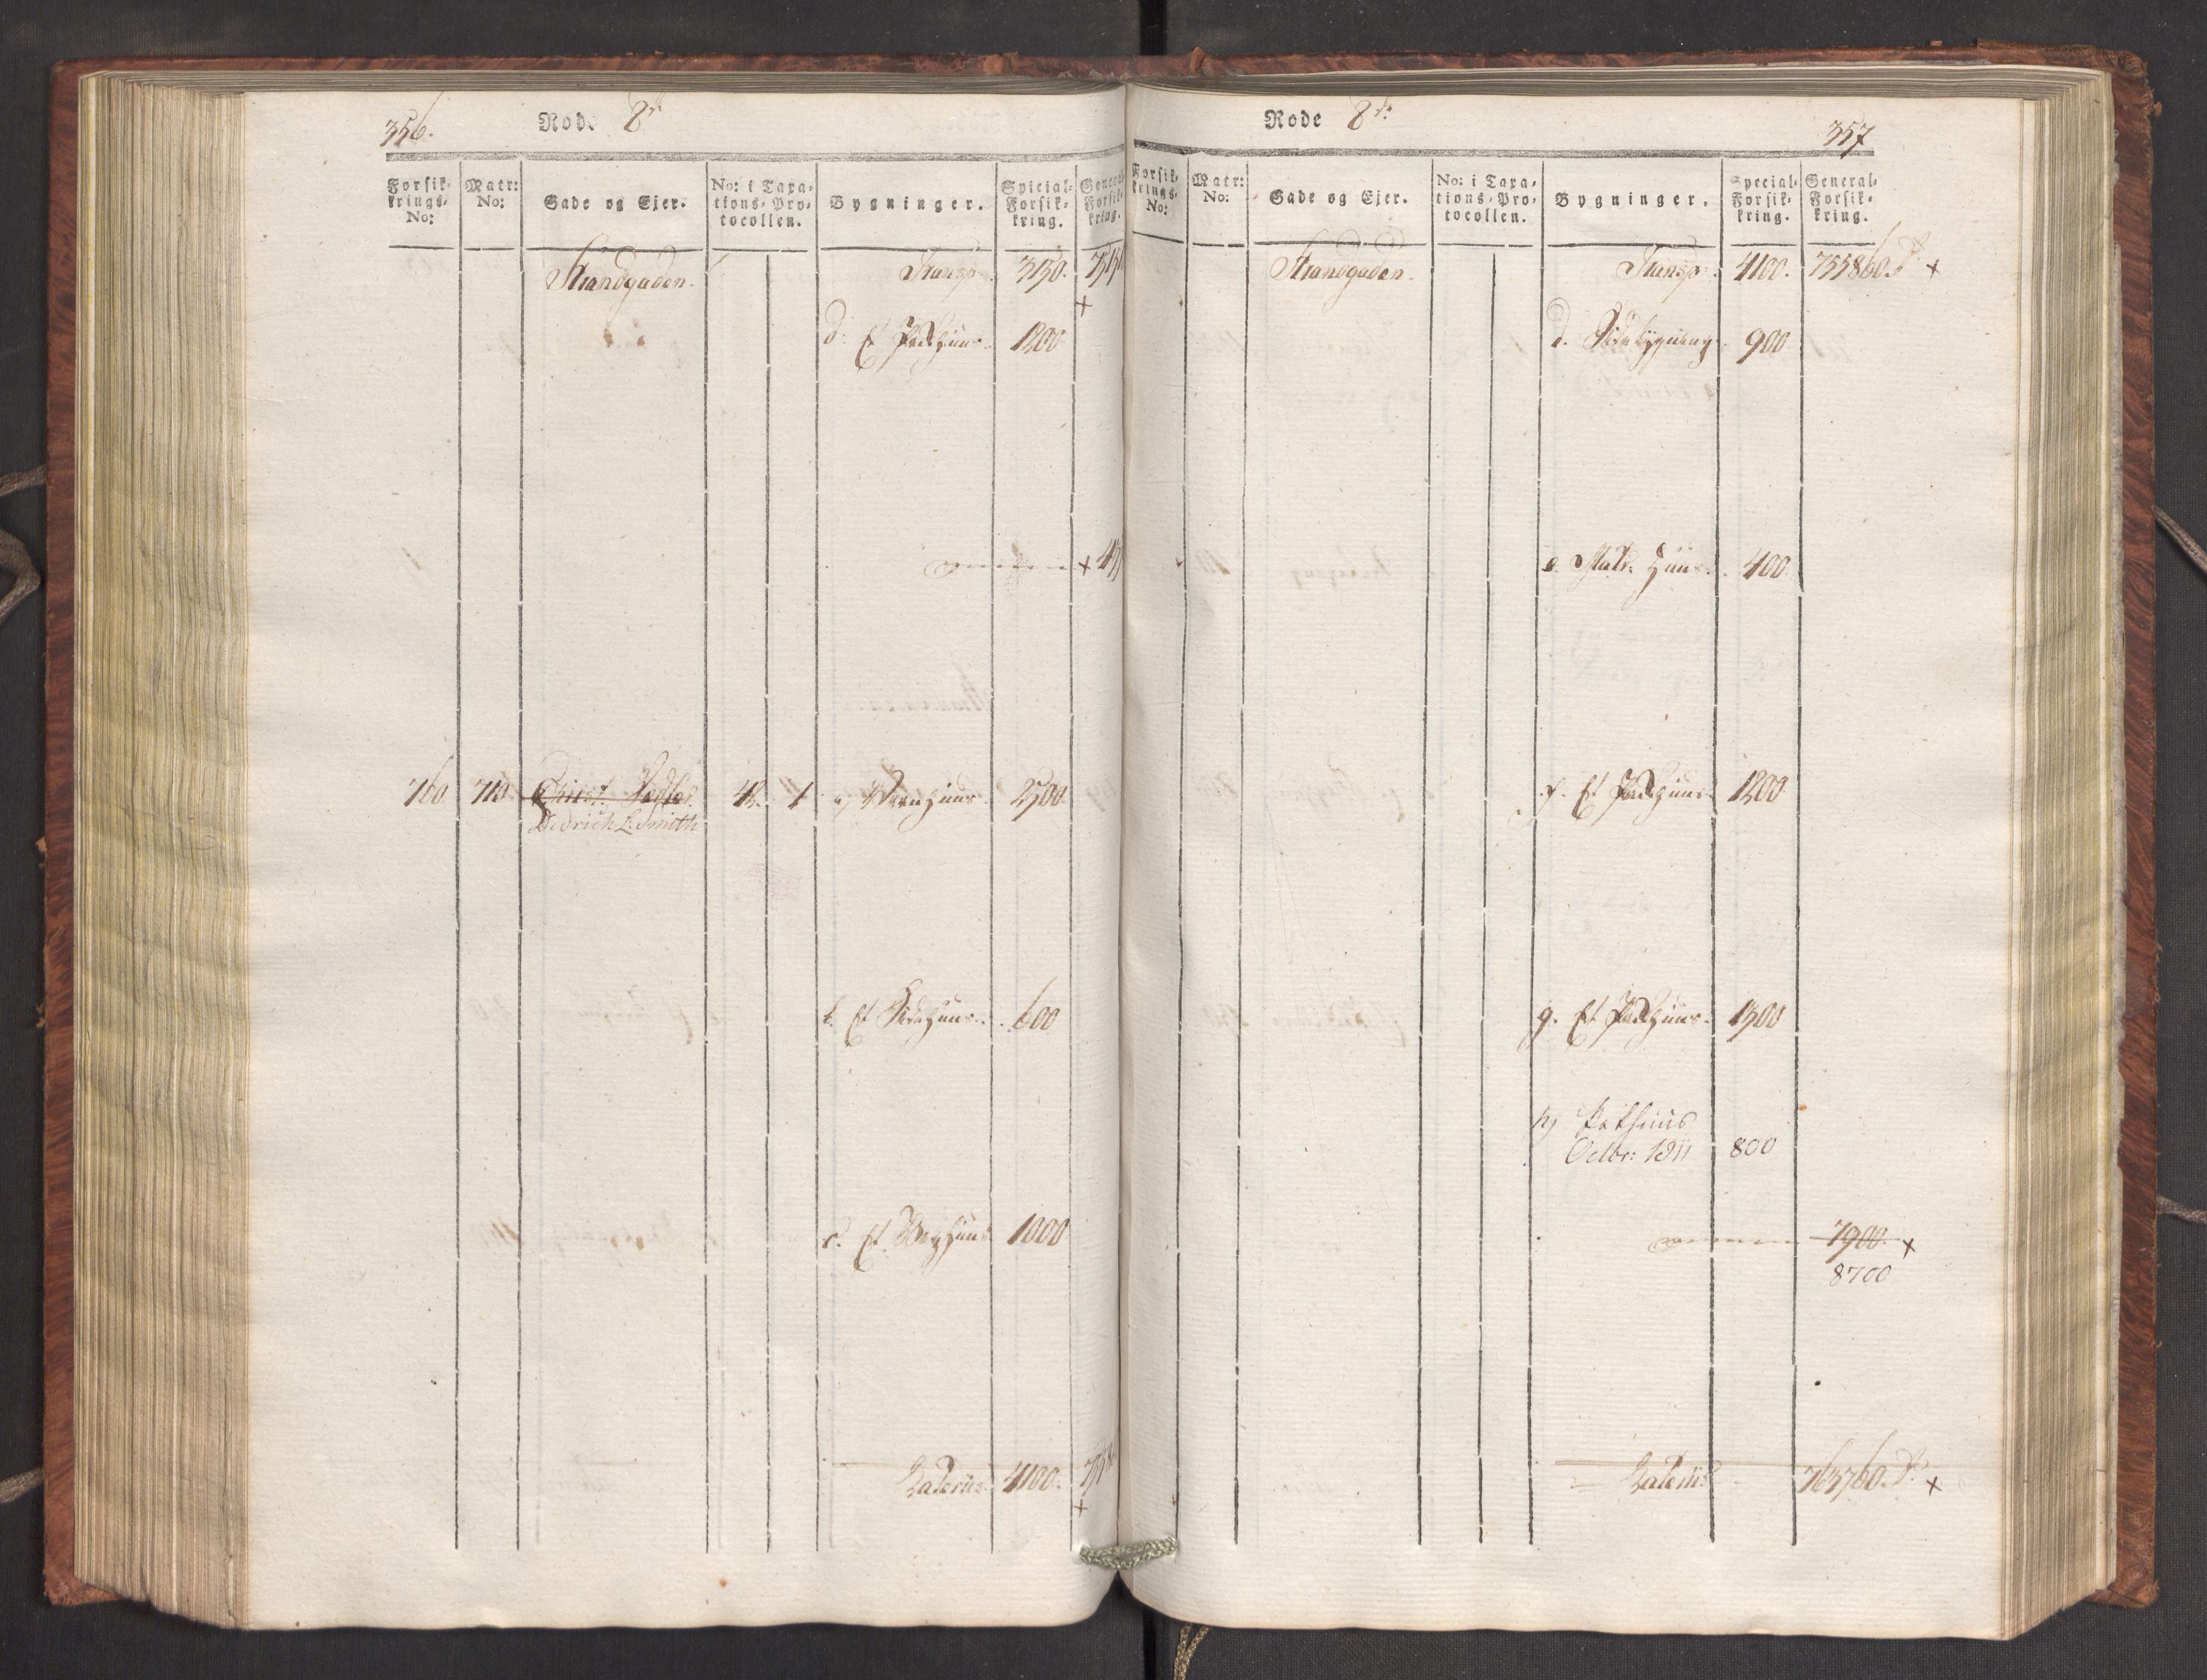 356.
Rode 8de
Forsik-
krings-
No:
Matr:
No:
Gade og Ejer.
No: i Taxa-
tions-Pro-
tocollen.
Bygninger.
Special-
Forsik-
kring.
General-
Forsik-
kring.
Strandgaden.
Transp. 3150.
d. Et Pakhuus. 1200
760 710 Christ.
Didrich L. Smith
42. 1 a, Vaanhuus. 2500
b. Et Sidehuus. 600
c. Et 1000
Lateris 4100.
Rode 8de
357
Forsik-
krings-
No:
Matr:
No:
Gade og Ejer.
No: i Taxa-
tions-Pro-
tocollen.
Bygninger.
Special-
Forsik-
kring.
General-
Forsik-
kring.
Strandgaden.
Transp. 4100. 755860 +
d. Sidebygning 900
e. Huus. 400
f. Et Pakhuus. 1200
g. Et Pakhuus. 1300
h, Pakhuus
Octbr: 1811 800
7900. +
8700
Lateris 763760. +